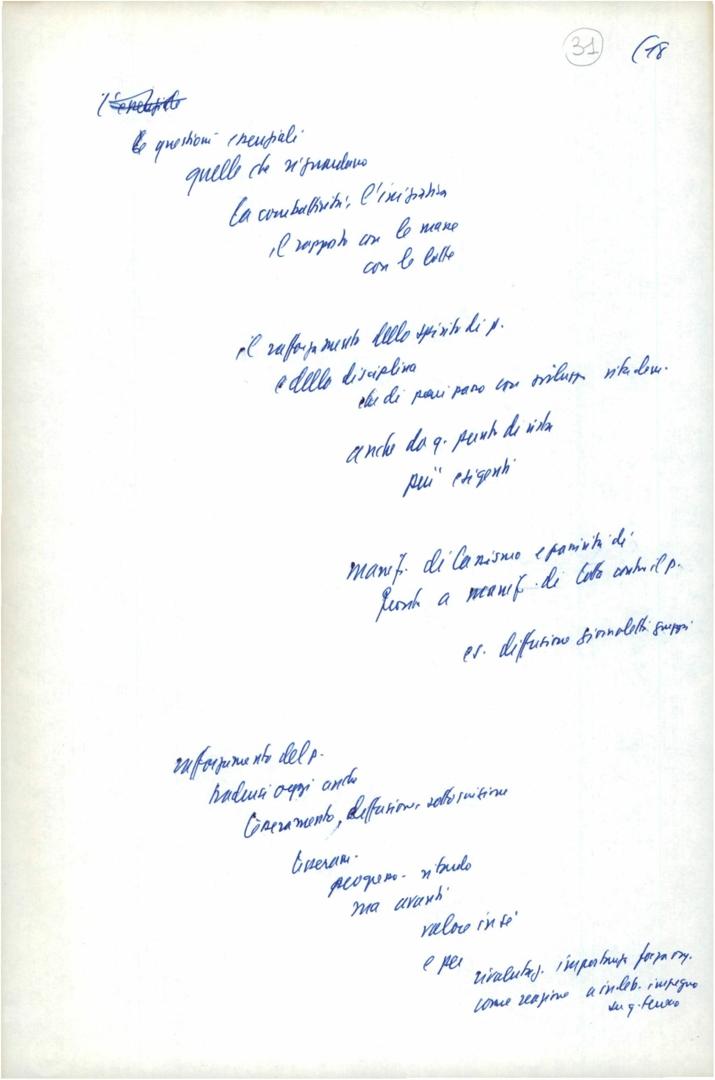 31 (18
l'essenziale
le questioni essenziali
quelle che riguardano
la combattività, l'iniziativa
il rapporto con le masse
con le lotte
il rafforzamento dello spirito di p.
e della disciplina
che di pari passo con sviluppo
anche da q. punto di vista
più esigenti
manif. di lassismo e passività di
fronte a manif. di lotta contro il p.
es. diffusione giornaletti gruppi
rafforzamento del p.
tradursi oggi anche
tesseramento, diffusione, sottoscrizione
tesseram.
progresso - ritardo
ma avanti
valore in sé
e per
rivalutaz. importanza forza org.
come reazione a indeb. impegno
su q. terreno